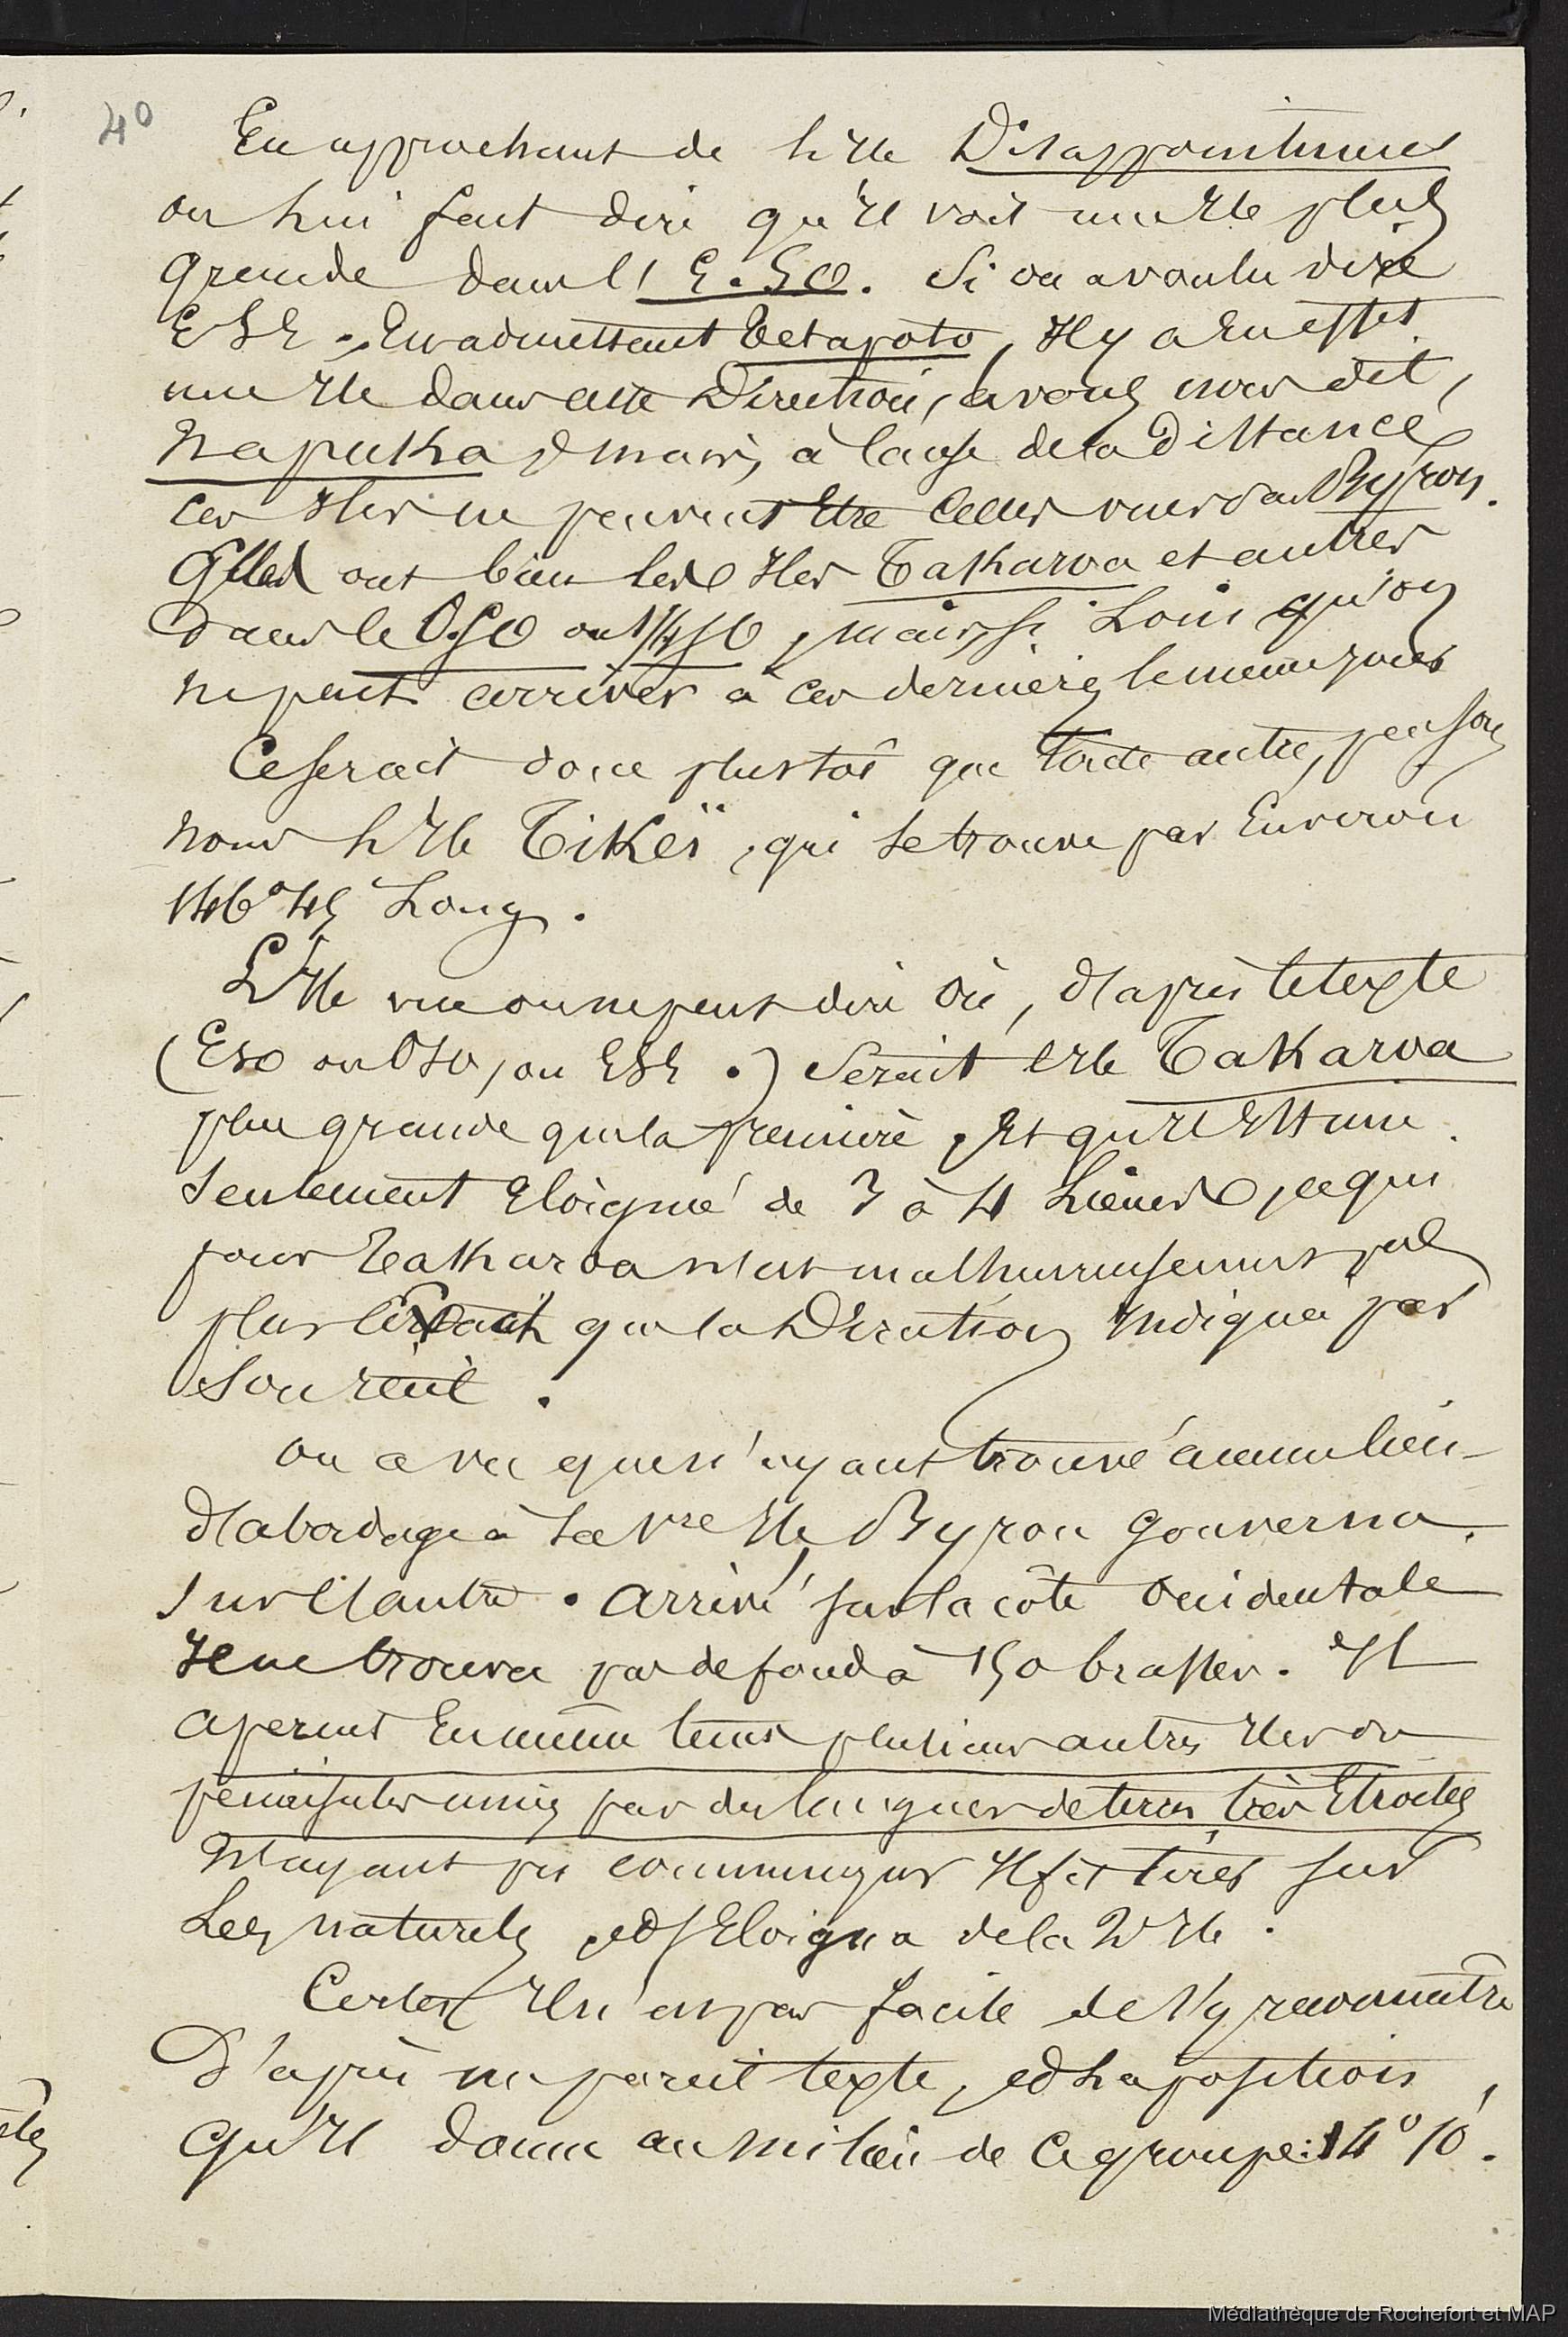 40
En approchant de l'Ile Disappointment
on lui fait dire qu'il voit une Ile plus
grande dans l' E.SO. Si on a voulu dire
ESE. En admettant Tetapoto, Il y a En effet
une Ile dans cette Direction, avons nous dit,
Napuka, mais, à cause de la Distance,
ces Iles ne peuvent Etre celles vues par Byron.
Elles ont bien les Iles Takaroa et autres
dans le OSO ou 1/4 SO, mais, si Loin qu'on
ne peut arriver à ces dernières le meme jour
Ce serait donc plustôt que toute autre, pensons
nous l'Ile Tikeï, qui se trouve par Environ
146°45 Long.
L'Ile vue on ne peut dire Où, d'après le texte
(ESO ou OSO, ou ESE.) Serait l'Ile Takaroa
plus grande que la première, Et qu'il Estime
Seulement Eloigné de 3 à 4 Lieues, ce qui
pour Takaroa n'est malheureusement pas
plus Exact que la Direction Indiquée par
Son récit.
On a vu que n'ayant trouvé aucun lieu
d'abordage à la 1re Ile Byron gouverna
sur l'autre. Arrivé sur la côte Occidentale
Il ne trouva pas de fond à 150 brasses. Il
aperçut En même tems plusieurs autres Iles ou
péninsules unies par des langues de terres très Etroites
N'ayant pu communiquer Il fit tirer sur
Les naturels, et s'Eloigna de la 2e Ile.
Certes Il n'est pas facile de s'y reconnaître
D'après un pareil texte, et La position
qu'Il donne au milieu de ce groupe: 14°10'.
Médiathèque de Rochefort et MAP